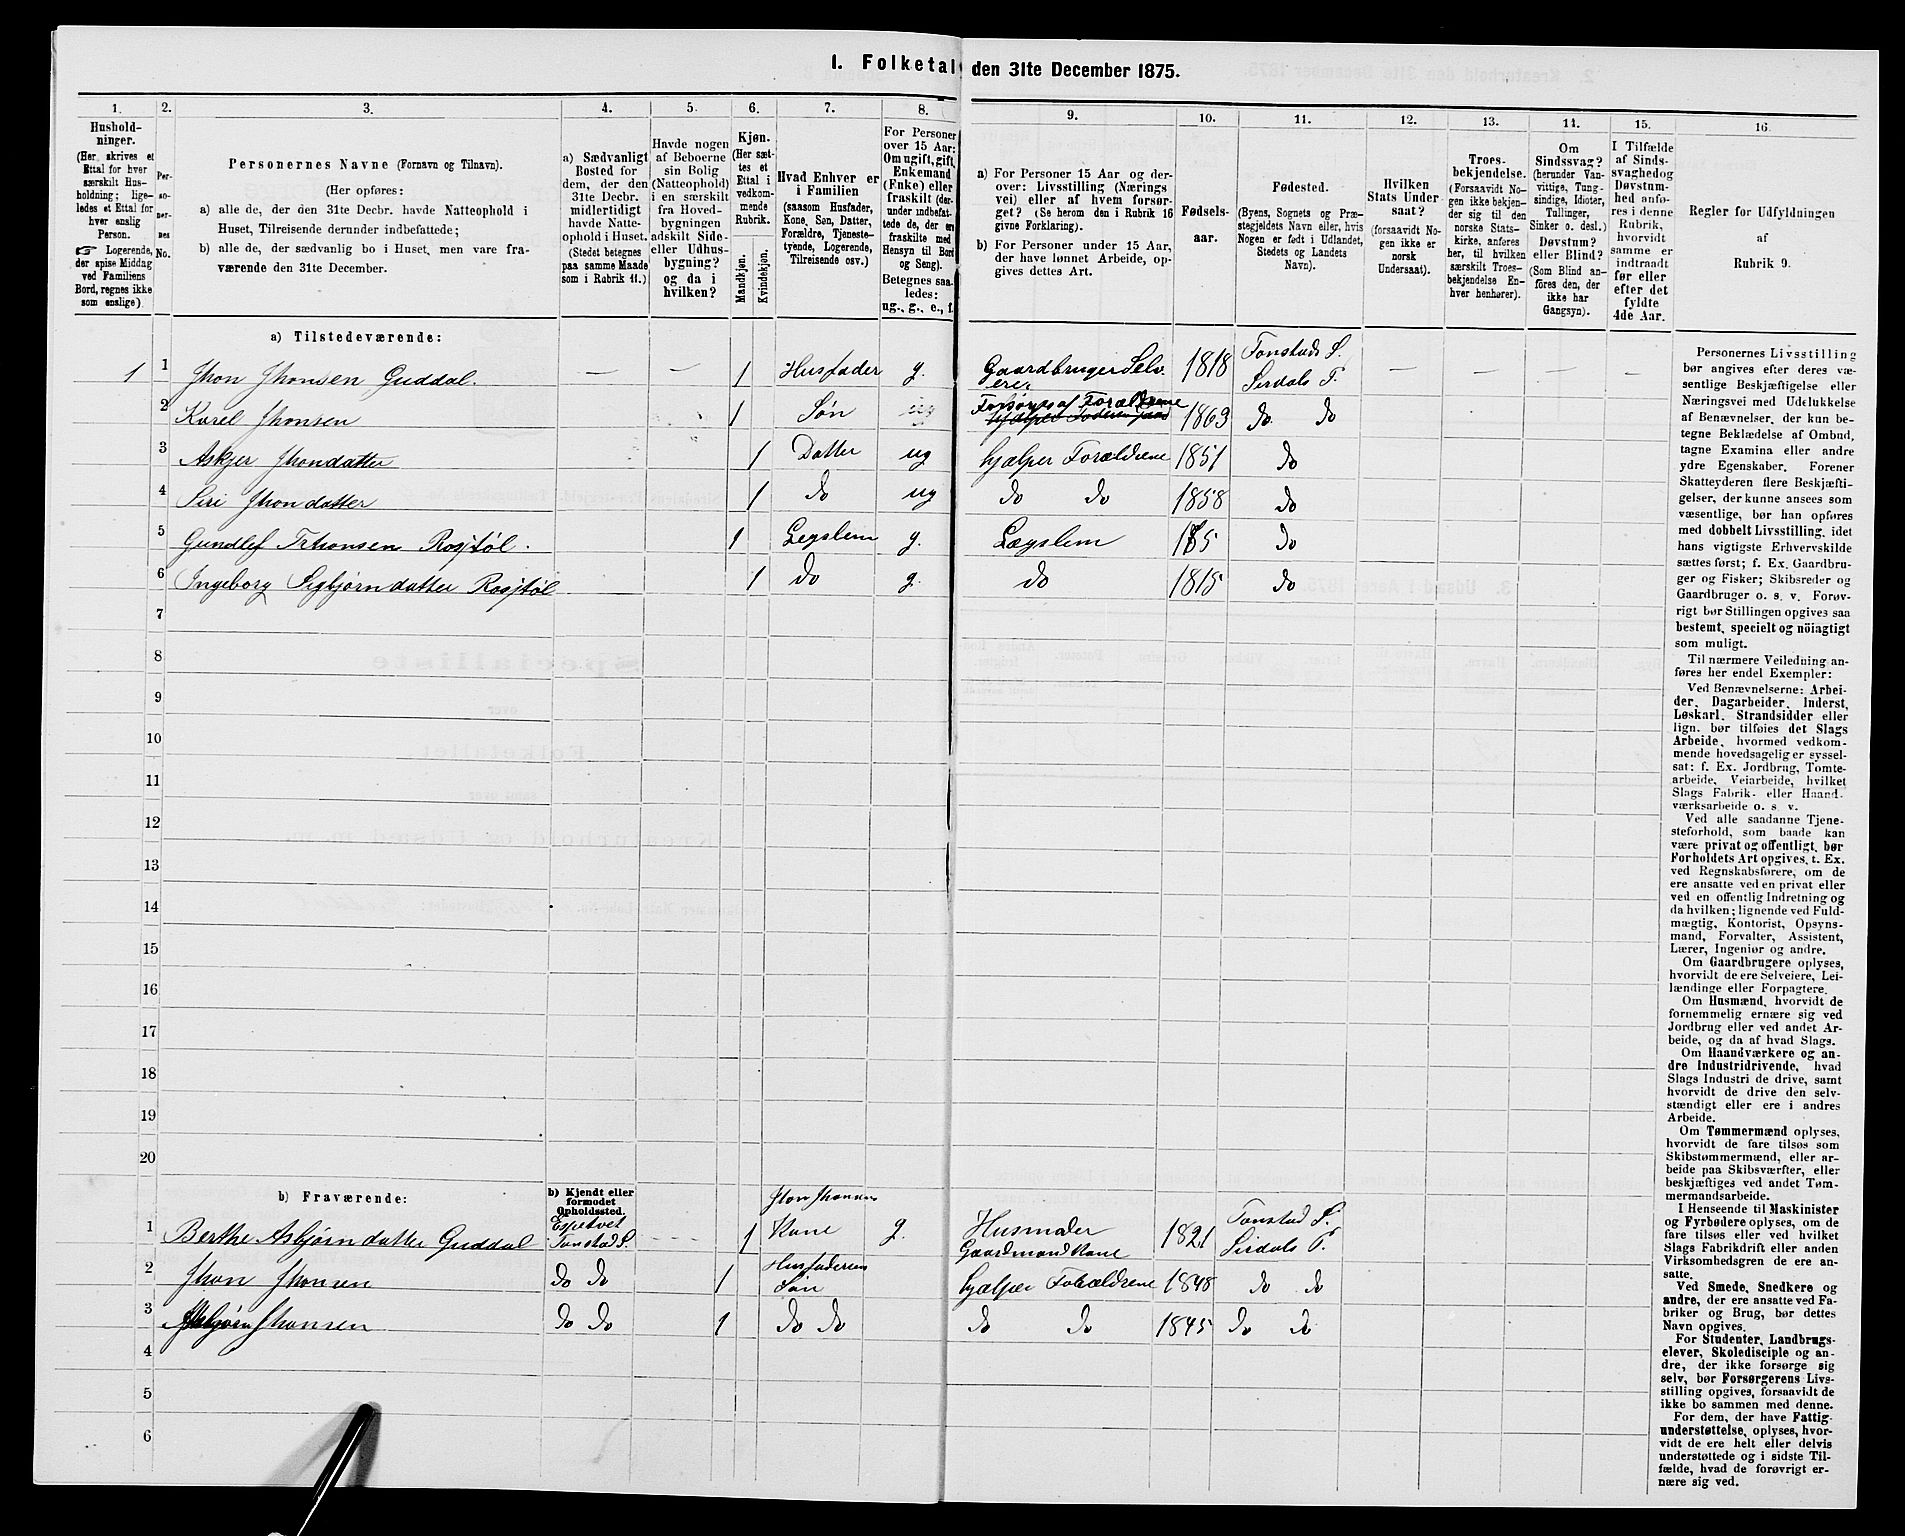 1. Folketal den 31te December 1875.
1. 2. 3. 4. 5. 6. 7. 8. 9. 10. 11. 12. 13. 14. 15. 16.
Hushold-
ninger.
(Her skrives et
Ettal for hver
særskilt Hus-
holdning; lige-
ledes et Ettal for
hver enslig
Person.
☞ Logerende,
der spise Middag
ved Familiens
Bord, regnes ikke
som enslige).
Per-
so-
ner-
nes
No.
Personernes Navne (Fornavn og Tilnavn).
(Her opføres:
a) alle de, der den 31te Decbr. havde Natteophold i
Huset, Tilreisende derunder indbefattede;
b) alle de, der sædvanlig bo i Huset, men vare fra-
værende den 31te December.
a) Sædvanligt
Bosted for
dem, der den
31te Decbr.
midlertidigt
havde Natte-
ophold i Huset.
(Stedet betegnes
paa samme Maade
som i Rubrik 11.)
Havde nogen
af Beboerne
sin Bolig
(Natteophold)
i en særskilt
fra Hoved-
bygningen
adskilt Side-
eller Udhus-
bygning?
og da i
hvilken?
Kjøn.
(Her sæt-
tes et
Ettal i
vedkom-
mende
Rubrik.
Mandkjøn.
Kvindekjøn.
Hvad Enhver er
i Familien
(saasom Husfader,
Kone, Søn, Datter,
Forældre, Tjeneste-
tyende, Logerende,
Tilreisende osv.)
For Personer
over 15 Aar:
Om ugift, gift,
Enkemand
(Enke) eller
fraskilt (der-
under indbefat-
tede de, der ere
fraskilte med
Hensyn til Bord
og Seng).
Betegnes saa-
ledes:
ug., g., e., f.
a) For Personer 15 Aar og der-
over: Livsstilling (Nærings-
vei) eller af hvem forsør-
get? (Se herom den i Rubrik 16
givne Forklaring).
b) For Personer under 15 Aar,
der have lønnet Arbeide, op-
gives dettes Art.
Fødsels-
aar.
Fødested.
(Byens, Sognets og Præ-
stegjeldets Navn eller, hvis
Nogen er født i Udlandet,
Stedets og Landets
Navn).
Hvilken
Stats Under-
saat?
(forsaavidt No-
gen ikke er
norsk
Undersaat).
Troes-
bekjendelse.
(Forsaavidt No-
gen ikke bekjen-
der sig til den
norske Stats-
kirke, anføres
her, til hvilken
særskilt Troes-
bekjendelse En-
hver henhører).
Om
Sindssvag?
(herunder Van-
vittige, Tung-
sindige, Idioter,
Tullinger,
Sinker o. desl.)
Døvstum?
eller Blind?
(Som Blind an-
føres den, der
ikke har
Gangsyn).
I Tilfælde
af Sinds-
svaghedog
Døvstum-
hed anfø-
res i denne
Rubrik,
hvorvidt
samme er
indtraadt
før eller
efter det
fyldte
4de Aar.
Regler for Udfyldningen
af
Rubrik 9.
a) Tilstedeværende:
1 1 Jhon Jhonsen Guddal. — — 1 Husfader g. Gaardbruger Selv-
ere. 1818 Tonstads S.
Sirdals P. — — — —
2 Karel Jhonsen 1 Søn ug Forsørges af Forældrene
hjælper Faderen 1863 do do
3 Askjer Jhondatter 1 Datter ug hjælper Forældrene 1851 do
4 Siri Jhondatter 1 do ug do do 1858 do
5 Gundlef Rosjtøl. 1 Legslem g. Lægslem do
6 Ingeborg Sigbjørndatter Rosjtøl 1 do g. do 1815 do
7
8
9
10
11
12
13
14
15
16
17
18
19
20
b) Fraværende:
b) Kjendt eller
formodet
Opholdssted.
1 Berthe Asbjørndatter Guddal Espetvet
Tonstad S. 1 Jhon Jhonsens
Kone g. Husmoder
Gaardmandkone 1821 Tonstad S.
Sirdals P.
2 Jhon Jhonsen do do 1 Husfaderens
Søn hjælper Forældrene 1848 do do
3 Asbjørn Jhonsen do do 1 do do do do 1845 do do
4
5
6
Personernes Livsstilling
bør angives efter deres væ-
sentlige Beskjæftigelse eller
Næringsvei med Udelukkelse
af Benævnelser, der kun be-
tegne Beklædelse af Ombud,
tagne Examina eller andre
ydre Egenskaber. Forener
Skatteyderen flere Beskjæfti-
gelser, der kunne ansees som
væsentlige, bør han opføres
med dobbelt Livsstilling, idet
hans vigtigste Erhvervskilde
sættes først; f. Ex. Gaardbru-
ger og Fisker; Skibsreder og
Gaardbruger o. s. v. Forøv-
rigt bør Stillingen opgives saa
bestemt, specielt og nöiagtigt
som muligt.
Til nærmere Veiledning an-
føres her endel Exempler:
Ved Benævnelserne: Arbei-
der, Dagarbeider, Inderst,
Løskarl, Strandsidder eller
lign. bør tilføies det Slags
Arbeide, hvormed vedkom-
mende hovedsagelig er syssel-
sat; f. Ex. Jordbrug, Tomte-
arbeide, Veiarbeide, hvilket
Slags Fabrik- eller Haand-
værksarbeide o. s. v.
Ved alle saadanne Tjene-
steforhold, som baade kan
være privat og offentligt, bør
Forholdets Art opgives, t. Ex.
ved Regnskabsførere, om de
ere ansatte ved en privat eller
ved en offentlig Indretning og
da hvilken; lignende ved Fuld-
mægtig, Kontorist, Opsyns-
mand, Forvalter, Assistent,
Lærer, Ingeniør og andre.
Om Gaardbrugere oplyses,
hvorvidt de ere Selveiere, Lei-
lændinge eller Forpagtere.
Om Husmænd, hvorvidt de
fornemmelig ernære sig ved
Jordbrug eller ved andet Ar-
beide, og da af hvad Slags.
Om Haandværkere og an-
dre Industridrivende, hvad
Slags Industri de drive, samt
hvorvidt de drive den selv-
stændigt eller ere i andres
Arbeide.
Om Tømmermænd oplyses,
hvorvidt de fare tilsøs som
Skibstømmermænd, eller ar-
beide paa Skibsværfter, eller
beskjæftiges ved andet Tøm-
mermandsarbeide.
I Henseende til Maskinister
og Fyrbødere oplyses, om de
fare tilsøs eller ved hvilket
Slags Fabrikdrift eller anden
Virksomhedsgren de ere an-
satte.
Ved Smede, Snedkere og
andre, der ere ansatte ved Fa-
briker og Brug, bør dettes
Navn opgives.
For Studenter, Landbrugs-
elever, Skoledisciple og an-
dre, der ikke forsørge sig
selv, bør Forsørgerens Livs-
stilling opgives, forsaavidt de
ikke bo sammen med denne.
For dem, der have Fattig-
understøttelse, oplyses, hvor-
vidt de ere helt eller delvis
understøttede og i sidste Til-
fælde, hvad de forøvrigt er-
nære sig ved.